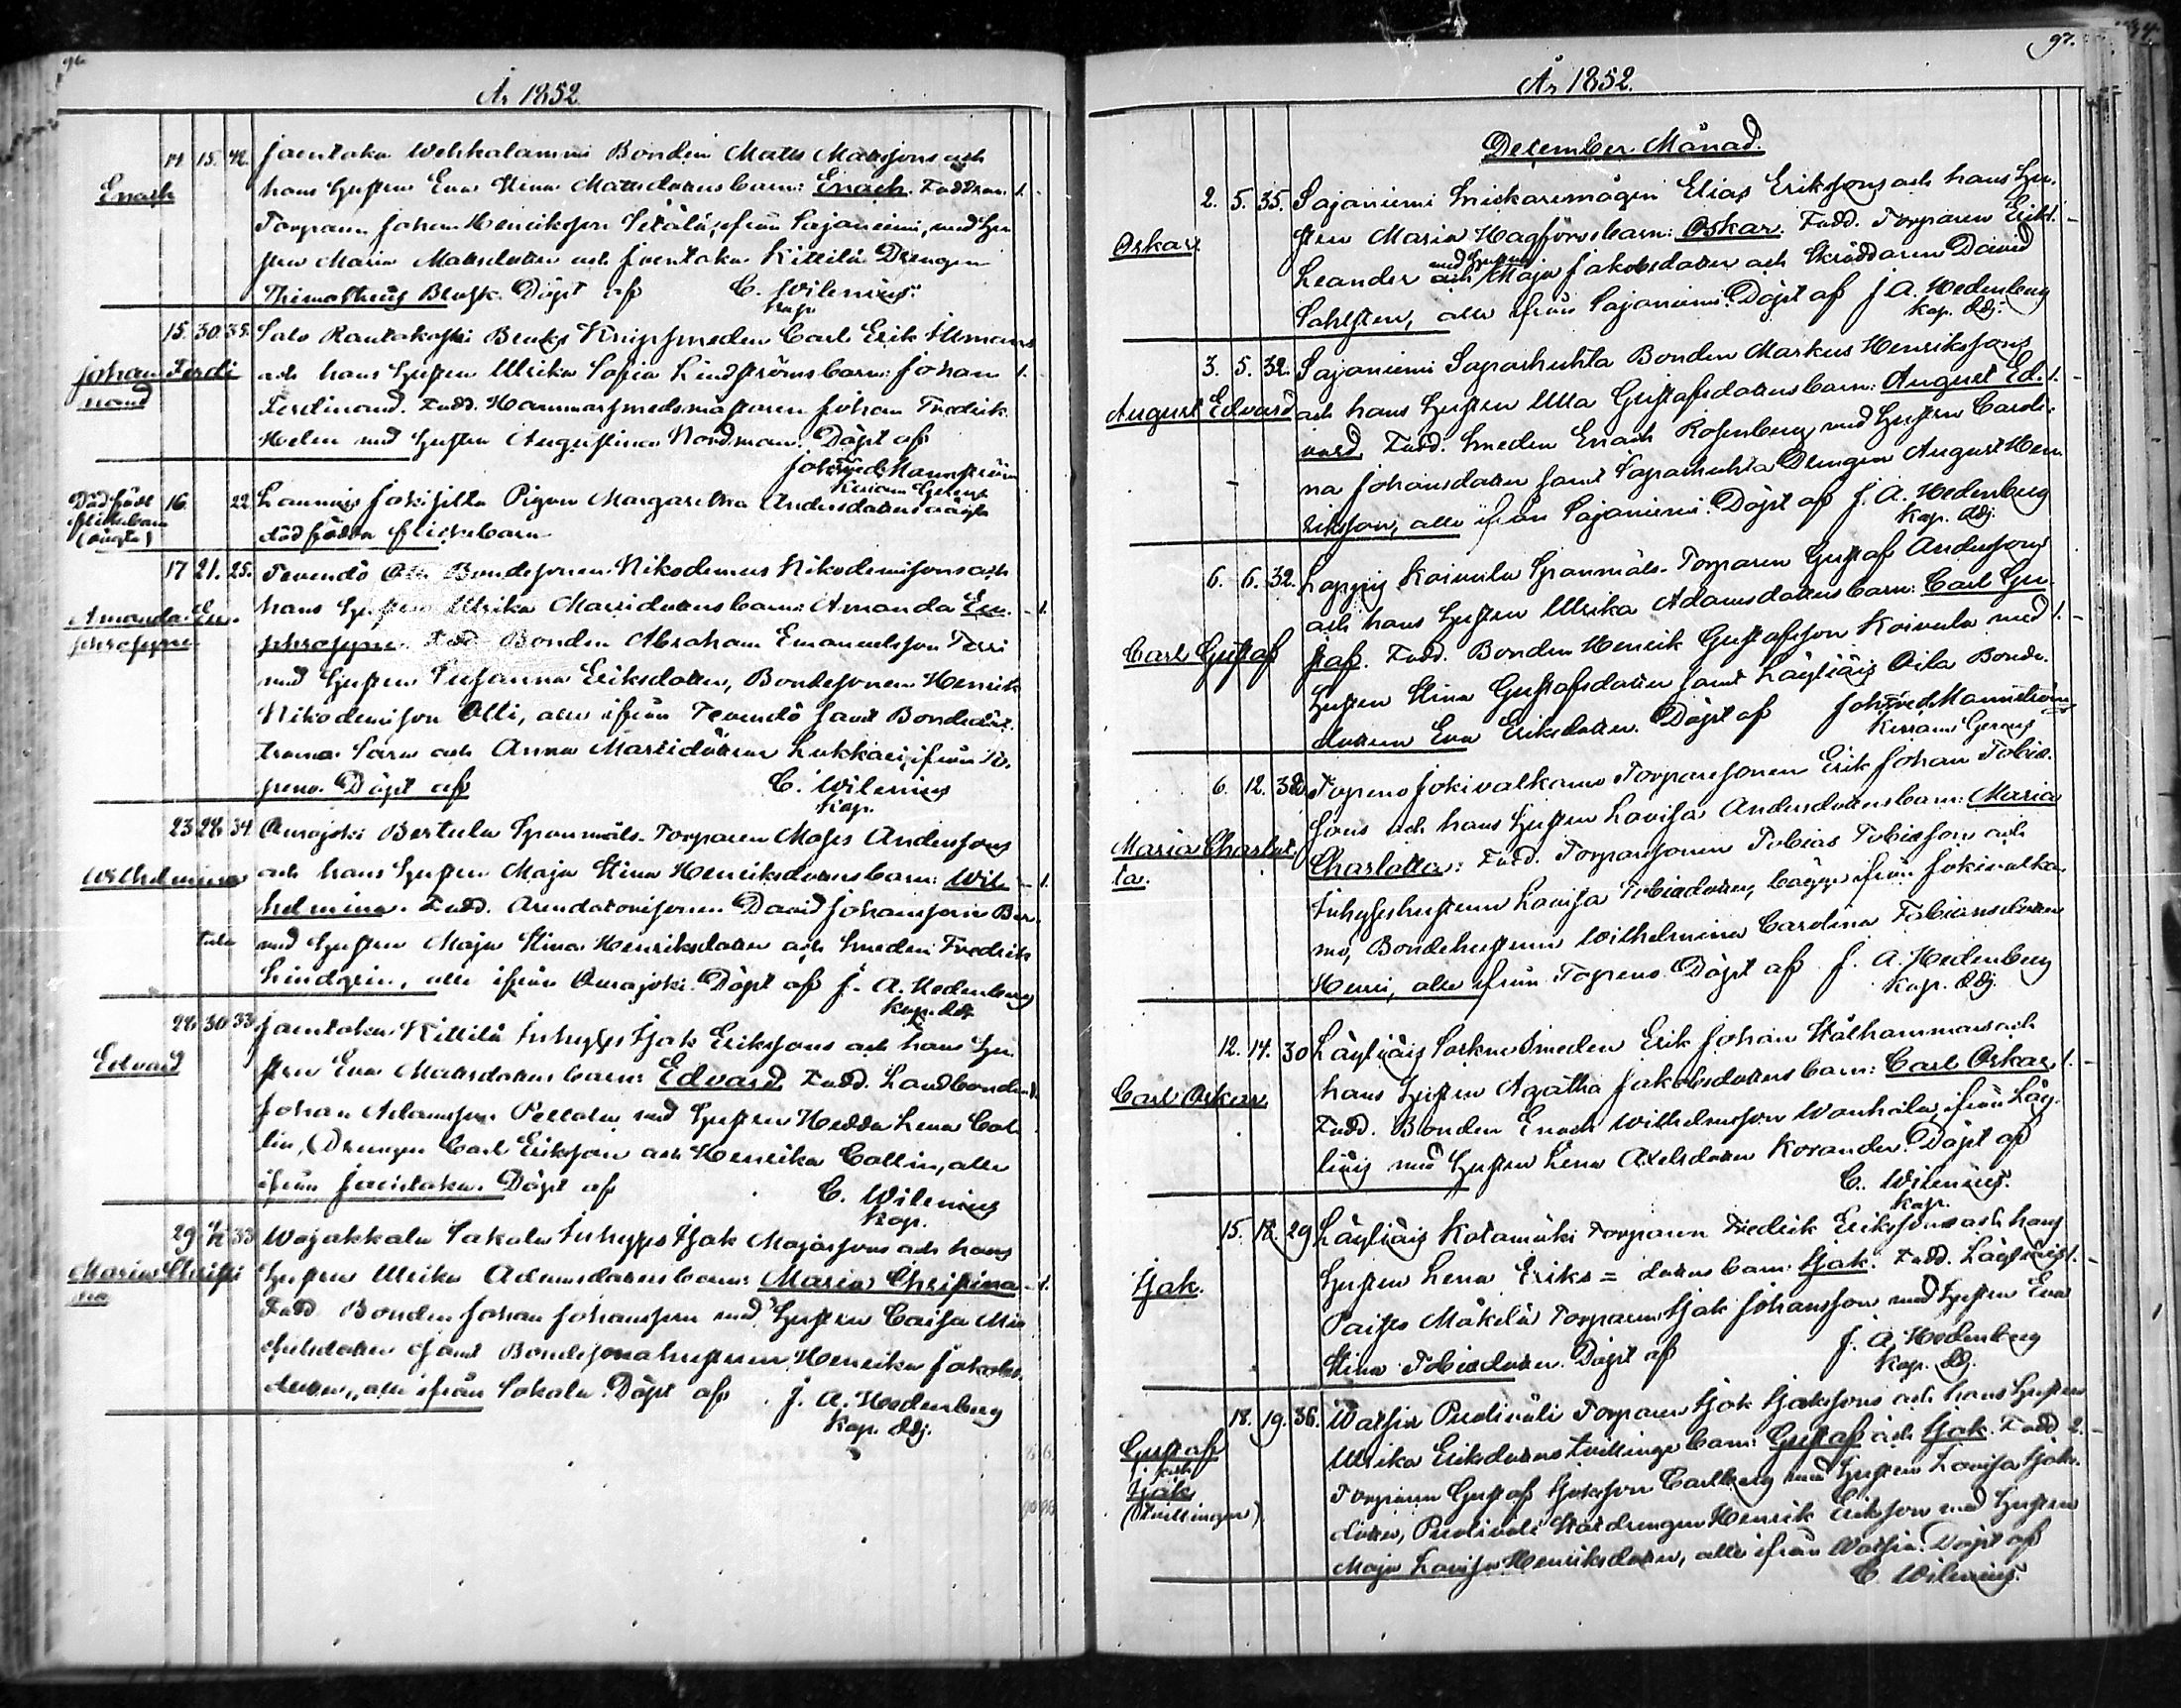 96.
År 1852.
14 15. 42. Jaentaka Wehkalammi Bonden Matts Mattssons och
Enoch hans hustru Eva Stina Mattsdotters barn: Enoch. Fadd. 1. -
Torparen Johan Henriksson Setälä, ifrån Sajaniemi, med hu-
stru Maria Mattsdotter och Jaentaka Kittilä Drengen
Thimotheus Döpt af C. Wilenius
Kap.
15. 30. 35. Salo Rautakoski Bruks Knipsmeden Carl Erik
Johan Ferdi- och hans hustru Ulrika Sofia Lindströms barn: Johan 1.
nand Ferdinand. Fadd. Hammarsmedsmästaren Johan Fredrik
med hustru Augustina Nordman. Döpt af
Joh. Fred. Mannström
Dödfödt 16. 22. Launnäis Jokisilta Pigan Margaretha Andersdotters oägta
flickebarn
(oägta) dödfödda flickebarn
17 21. 25. Tevendö Bondesonen Nikodemus Nikodemissons och
Amanda Eu- hans hustru Ulrika Mattsdotters barn: Amanda Eu- - 1.
phrosyne phrosyne. Fadd. Bonden Abraham Emanuelsson
med hustru Susanna Eriksdotter, Bondesonen Henrik
Nikodemisson Olli, alla ifrån Tevendö samt Bondedöt-
trarna Sara och Anna Mattsdöttrar Lukkari, ifrån To-
preno. Döpt af C. Wilenius
Kap.
23 28. 34. Ourajoki Bertula Spanmåls-Torparen Moses Anderssons
Wilhelmina och hans hustru Maja Stina Henriksdotters barn: Wil- - 1.
helmina. Fadd. Arendatorssonen David Johansson Ber-
tula med hustru Maja Stina Henriksdotter och Smeden Fredrik
Lindgrén, alla ifrån Ourajoki. Döpt af J. A. Hedenberg
Kap. Adj.
28. 30. 33. Jaentaka Kittilä Inhyses Isak Erikssons och hans hu-
Edvard stru Eva Mattsdotters barn: Edvard. Fadd. Landbonden 1.
Johan Adamsson Pellola med hustru Hedda Lena Col-
lin, Drengen Carl Eriksson och Henrika Collin, alla
ifrån Jaentaka. Döpt af C. Wilenius
Kap.
29 33 Wojakkala Sakala Inhyses Isak Majassons och hans
Maria Christi- hustru Ulrika Adamsdotters barn: Maria Christina - 1.
na Fadd. Bonden Johan Johansson med hustru Caisa Mi-
chelsdotter samt Bondesonahustrun Henrika Jakobs-
dotter, alla ifrån Sokala. Döpt af J. A. Hedenberg
Kap. Adj.
97.
År 1852.
December Månad.
2. 5. 35. Sajaniemi Snickaremågen Elias Erikssons och hans hu-
Oskar. stru Maria Hagfors barn: Oskar. Fadd. Torparen Erik 1. -
Leander med hustru Maja Jakobsdotter och Skräddaren David
Sahlsten, alla ifrån Sajaniemi. Döpt af J. A. Hedenberg
Kap. Adj.
3. 5. 32. Sajaniemi Saparhuhta Bonden Markus Henrikssons
August Edvard och hans hustru Ulla Gustafsdotters barn: August Ed- 1. -
vard. Fadd. Smeden Enoch Rosenberg med hustru Caroli-
na Johansdotter samt Saparhuhta Drengen August Hen-
riksson, alla ifrån Sajaniemi. Döpt af J. A. Hedenberg
Kap. Adj.
6. 6. 32. Loppis Koivula Spanmåls-Torparen Gustaf Anderssons
och hans hustru Ulrika Adamsdotters barn: Carl Gu-
Carl Gustaf staf. Fadd. Bonden Henrik Gustafsson Koivula med 1. -
hustru Stina Gustafsdotter samt Läyliäis Oila Bonde-
dottern Eva Eriksdotter. Döpt af Joh. Fred. Mannström
6. 12. 32. Topeno Jokivalkama Torparesonen Erik Johan Tobias-
sons och hans hustru Lovisa Andersdotters barn: Maria
Maria Charlot- Charlotta: Fadd. Torparesonen Tobias Tobiasson och
ta. Inhyseshustrun Lovisa Tobiadotter, bägge ifrån Jokivalka-
ma, Bondehustrun Wilhelmina Carolina Fabiansdotter
Henri, alla ifrån Topeno. Döpt af J. A. Hedenberg
Kap. Adj.
12. 14. 30 Läyliäis Sorkun Smeden Erik Johan Stålhammars och
Carl Oskar hans hustru Agatha Jakobsdotters barn: Carl Oskar. 1. -
Fadd. Bonden Enoch Wilhelmsson Wanhala, ifrån Läy-
liäis med hustru Lena Axelsdotter Korander. Döpt af
C. Wilenius.
Kap.
15. 18. 29 Läyliäis Kotamäki Torparen Fredrik Erikssons och hans
Isak. hustru Lena Eriks = dotters barn: Isak. Fadd. Läyliäis 1. -
Paiso Mäkelä Torparen Isak Johansson med hustru Eva
Stina Tobiadotter. Döpt af J. A. Hedenberg
Kap. Adj.
18. 19. 36. Watsia Puoliväli Torparen Isak Isakssons och hans hustru
Gustaf Ulrika Eriksdotters tvillinge barn: Gustaf och Isak. Fadd. 2. -
och
Isak Torparen Gustaf Isaksson Carlberg med hustru Lovisa Isaks-
(tvillingar) dotter, Puoliväli Stattdrengen Henrik Eriksson med hustru
Maja Lovisa Henriksdotter, alla ifrån Watsia. Döpt af
C. Wilenius.